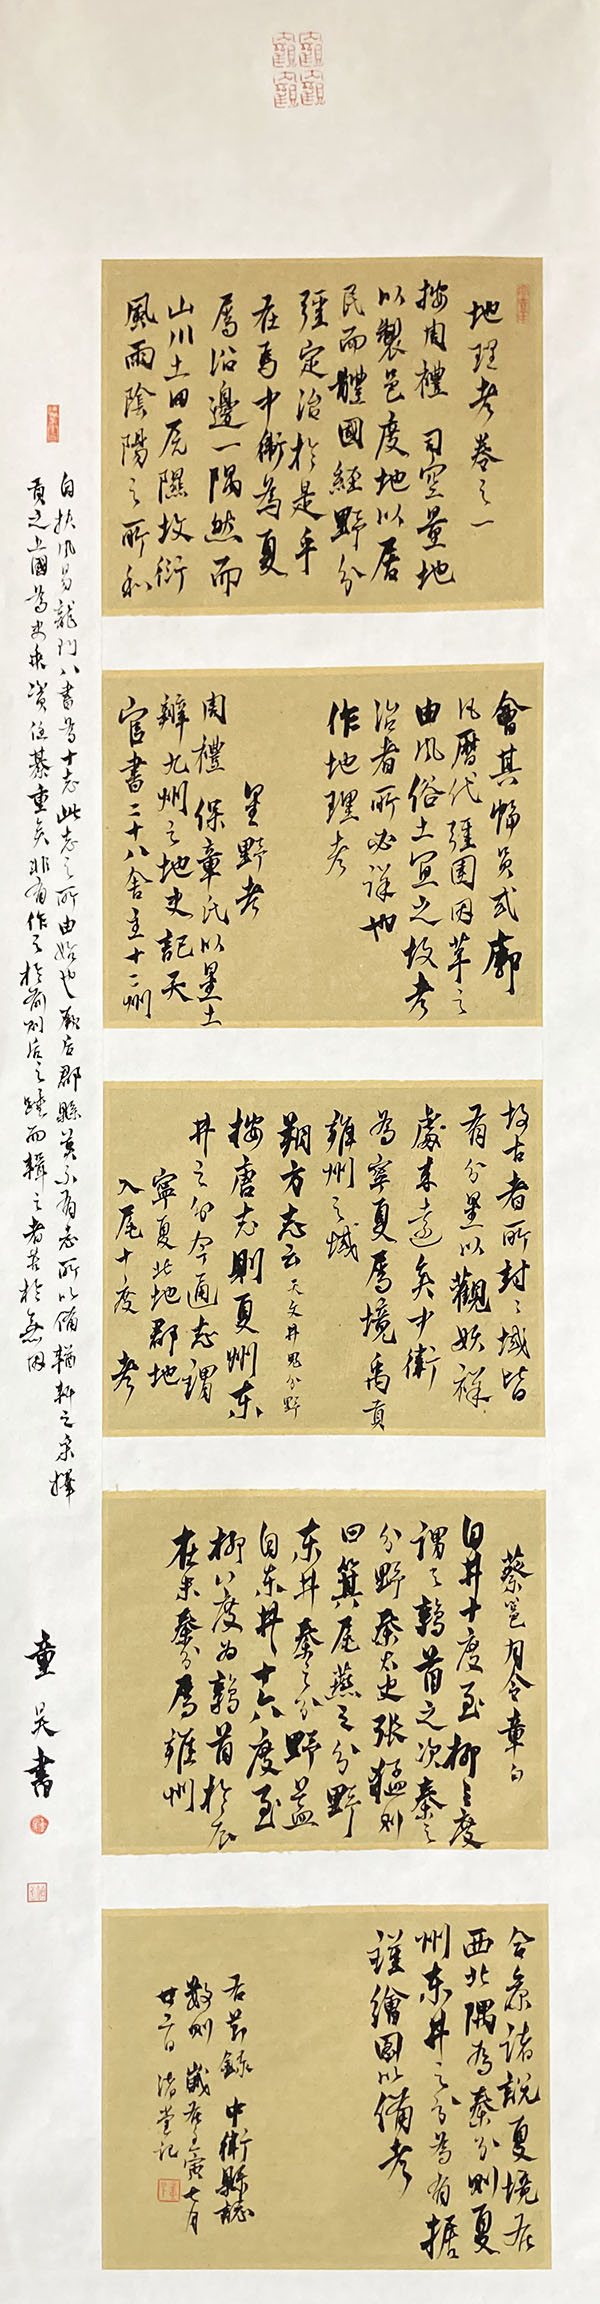 地理考卷之一
按周禮司空量地
以製邑度地以居
民而體國經野分
疆定治於是乎
在焉中衛為夏
屬沿邊一隅然而
山川土田原隰坟衍
風雨陰陽之所和
會其幅員式廓
凡曆代疆圉因革之
由風俗土宜之故考
治者所必詳也
作地理考
星野考
周禮保章氏以星土
辨九州之地史記天
官書二十八舍主十二州
故古者所封之域皆
有分星以觀妖祥
處來遠矣中衛
為寧夏屬境禹貢
雍州之域
朔方志云天文井鬼分野
按唐志則夏州東
井之分今通志謂
寧夏北地郡地
入尾十度 考
蔡邕月令章句
自井十度至柳三度
謂之鶉首之次秦之
分野秦太史張猛則
曰箕尾燕之分野
东井秦之分野蓋
自东井十六度至
柳八度為鶉首於辰
在未秦分屬雍州
合參諸說夏境在
西北隅為秦分則夏
州東井之分為有據
謹繪圖以備考
右節錄中衛縣誌
數則歲在壬寅七月
廿二日 渚堂記
自扶風易龍門八書為十志此志之所由始也厥后郡縣莫不有志所以備輶軒之采擇
貢之上國為史乘資任綦重矣非有作之於前則后之踵而輯之者苦於無因
童吴書